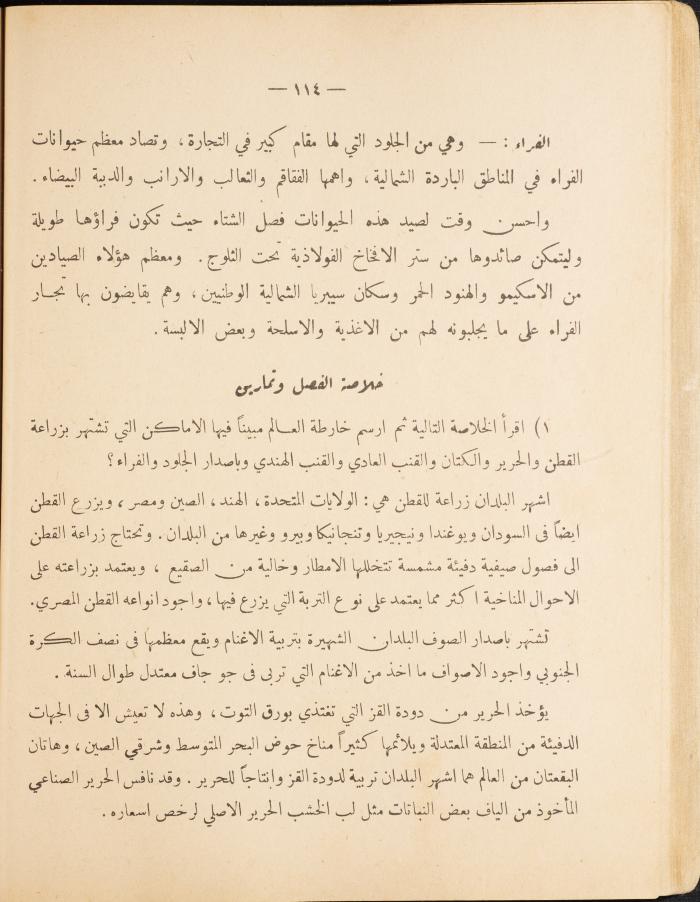 — ١١٤ —
الفراء : — وهي من الجلود التي لها مقام كبير في التجارة ، وتصاد معظم حيوانات
الفراء في المناطق الباردة الشمالية ، واهمها الفقاقم والثعالب والارانب والدببة البيضاء .
واحسن وقت لصيد هذه الحيوانات فصل الشتاء حيث تكون فراؤها طويلة
وليتمكن صائدوها من ستر الافخاخ الفولاذية تحت الثلوج . ومعظم هؤلاء الصيادين
من الاسكيمو والهنود الحمر وسكان سيبريا الشمالية الوطنيين ، وهم يقايضون بها تجار
الفراء على ما يجلبونه لهم من الاغذية والاسلحة وبعض الالبسة .
خلاصة الفصل وتمارين
١) اقرأ الخلاصة التالية ثم ارسم خارطة العالم مبيناً فيها الاماكن التي تشتهر بزراعة
القطن والحرير والكتان والقنب العادي والقنب الهندي وباصدار الجلود والفراء ؟
اشهر البلدان زراعة للقطن هي : الولايات المتحدة ، الهند ، الصين ومصر ، ويزرع القطن
ايضاً فى السودان ويوغندا ونيجيريا وتنجانيكا وبيرو وغيرها من البلدان . وتحتاج زراعة القطن
الى فصول صيفية دفيئة مشمسة تتخللها الامطار وخالية من الصقيع ، ويعتمد بزراعته على
الاحوال المناخية اكثر مما يعتمد على نوع التربة التي يزرع فيها ، واجود انواعه القطن المصري .
تشتهر باصدار الصوف البلدان الشهيرة بتربية الاغنام ويقع معظمها فى نصف الكرة
الجنوبي واجود الاصواف ما اخذ من الاغنام التي تربى فى جو جاف معتدل طوال السنة .
يؤخذ الحرير من دودة القز التي تغتذي بورق التوت ، وهذه لا تعيش الا فى الجهات
الدفيئة من المنطقة المعتدلة ويلائمها كثيراً مناخ حوض البحر المتوسط وشرقي الصين ، وهاتان
البقعتان من العالم هما اشهر البلدان تربية لدودة القز وانتاجاً للحرير . وقد نافس الحرير الصناعي
المأخوذ من الياف بعض النباتات مثل لب الخشب الحرير الاصلي لرخص اسعاره .